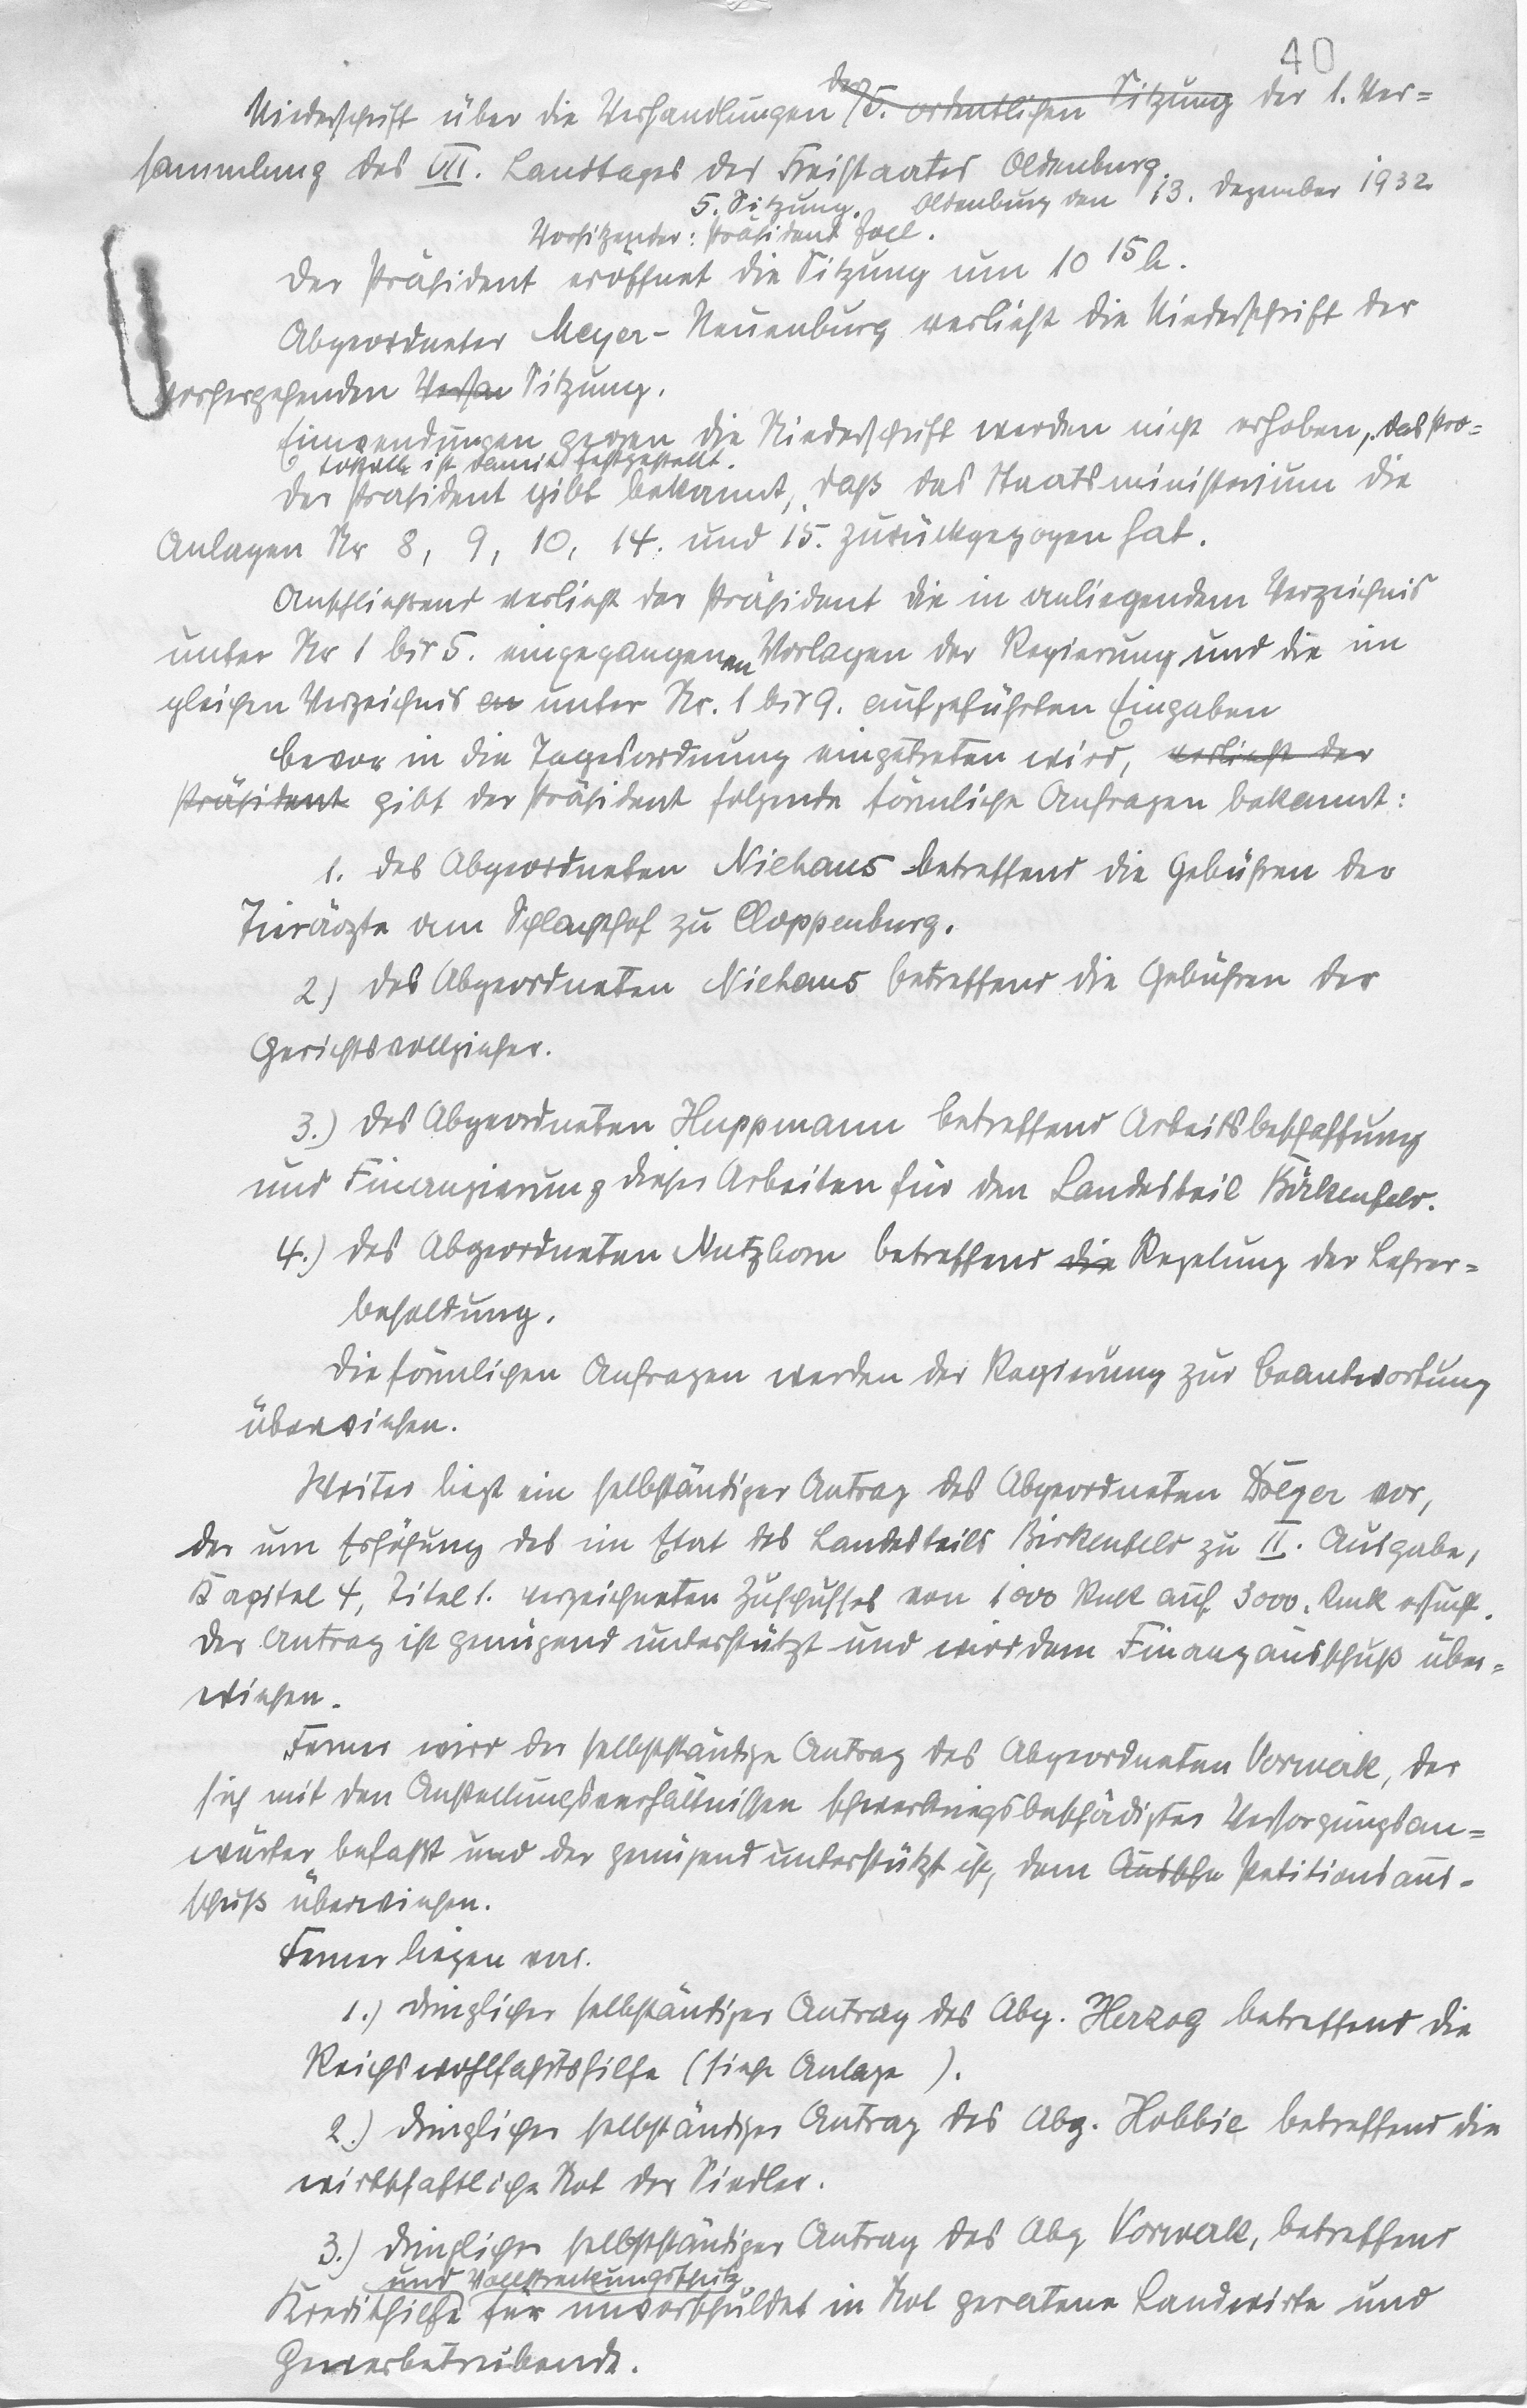 40
Niederschrift über die Verhandlungen der 5. ordentlichen Sitzung der 1. Ver=
sammlung des VII. Landtages des Freistaates Oldenburg.
5. Sitzung. Oldenburg den 13. Dezember 1932
Vorsitzender: Präsident Joel.
Der Präsident eröffnet die Sitzung um 10 15 h.
Abgeordneter Meyer-Neuenburg verliest die Niederschrift der
vorhergehenden Versa Sitzung.
Einwendungen gegen die Niederschrift werden nicht erhoben, das Pro=
tokoll ist damit festgestellt.
Der Präsident gibt bekannt, daß das Staatsministerium die
Anlagen Nr 8, 9, 10, 14. und 15. zurückgezogen hat.
Anschließend verliest der Präsident die in anliegendem Verzeichnis
unter Nr 1 bis 5. eingegangenen Vorlagen der Regierung und die im
gleichen Verzeichnis an unter Nr. 1 bis 9. aufgeführten Eingaben
Bevor in die Tagesordnung eingetreten wird, verliest der
Präsident gibt der Präsident folgende förmliche Anfragen bekannt:
1. des Abgeordneten Niehaus betreffend die Gebühren der
Tierärzte am Schlachthof zu Cloppenburg.
2) des Abgeordneten Niehaus betreffend die Gebühren der
Gerichtsvollzieher.
3.) des Abgeordneten Huppmann betreffend Arbeitsbeschaffung
und Finanzierung dieser Arbeiten für den Landesteil Birkenfeld.
4.) des Abgeordneten Nutzhorn betreffend die Regelung der Lehrer=
besoldung.
Die förmlichen Anfragen werden der Regierung zur Beantwortung
überwiesen.
Weiter liegt ein selbständiger Antrag des Abgeordneten Dölger vor,
der um Erhöhung des im Etat des Landesteils Birkenfeld zu II. Ausgabe,
Kapitel 4, Titel 1. verzeichneten Zuschusses von 1000 Rmk auf 3000. Rmk ersucht.
Der Antrag ist genügend unterstützt und wird dem Finanzausschuß über=
wiesen.
Ferner wird der selbstständige Antrag des Abgeordneten Vorwerk, der
sich mit den Anstellungsverhältnissen schwerkriegsbeschädigter Versorgungsan=
wärter befaßt und der genügend unterstützt ist, dem Ausschu Petitionsaus-
schuß überwiesen.
Ferner liegen vor.
1.) dringlicher selbständiger Antrag des Abg. Herzog betreffend die
Reichswohlfahrtshilfe (siehe Anlage ).
2.) dringlicher selbständiger Antrag des Abg. Hobbie betreffend die
wirtschaftliche Not der Siedler.
3.) dringlicher selbstständiger Antrag des Abg Vorwerk, betreffend
und Vollstreckungsschutz
Kredithilfe für unverschuldet in Not geratene Landwirte und
Gewerbetreibende.